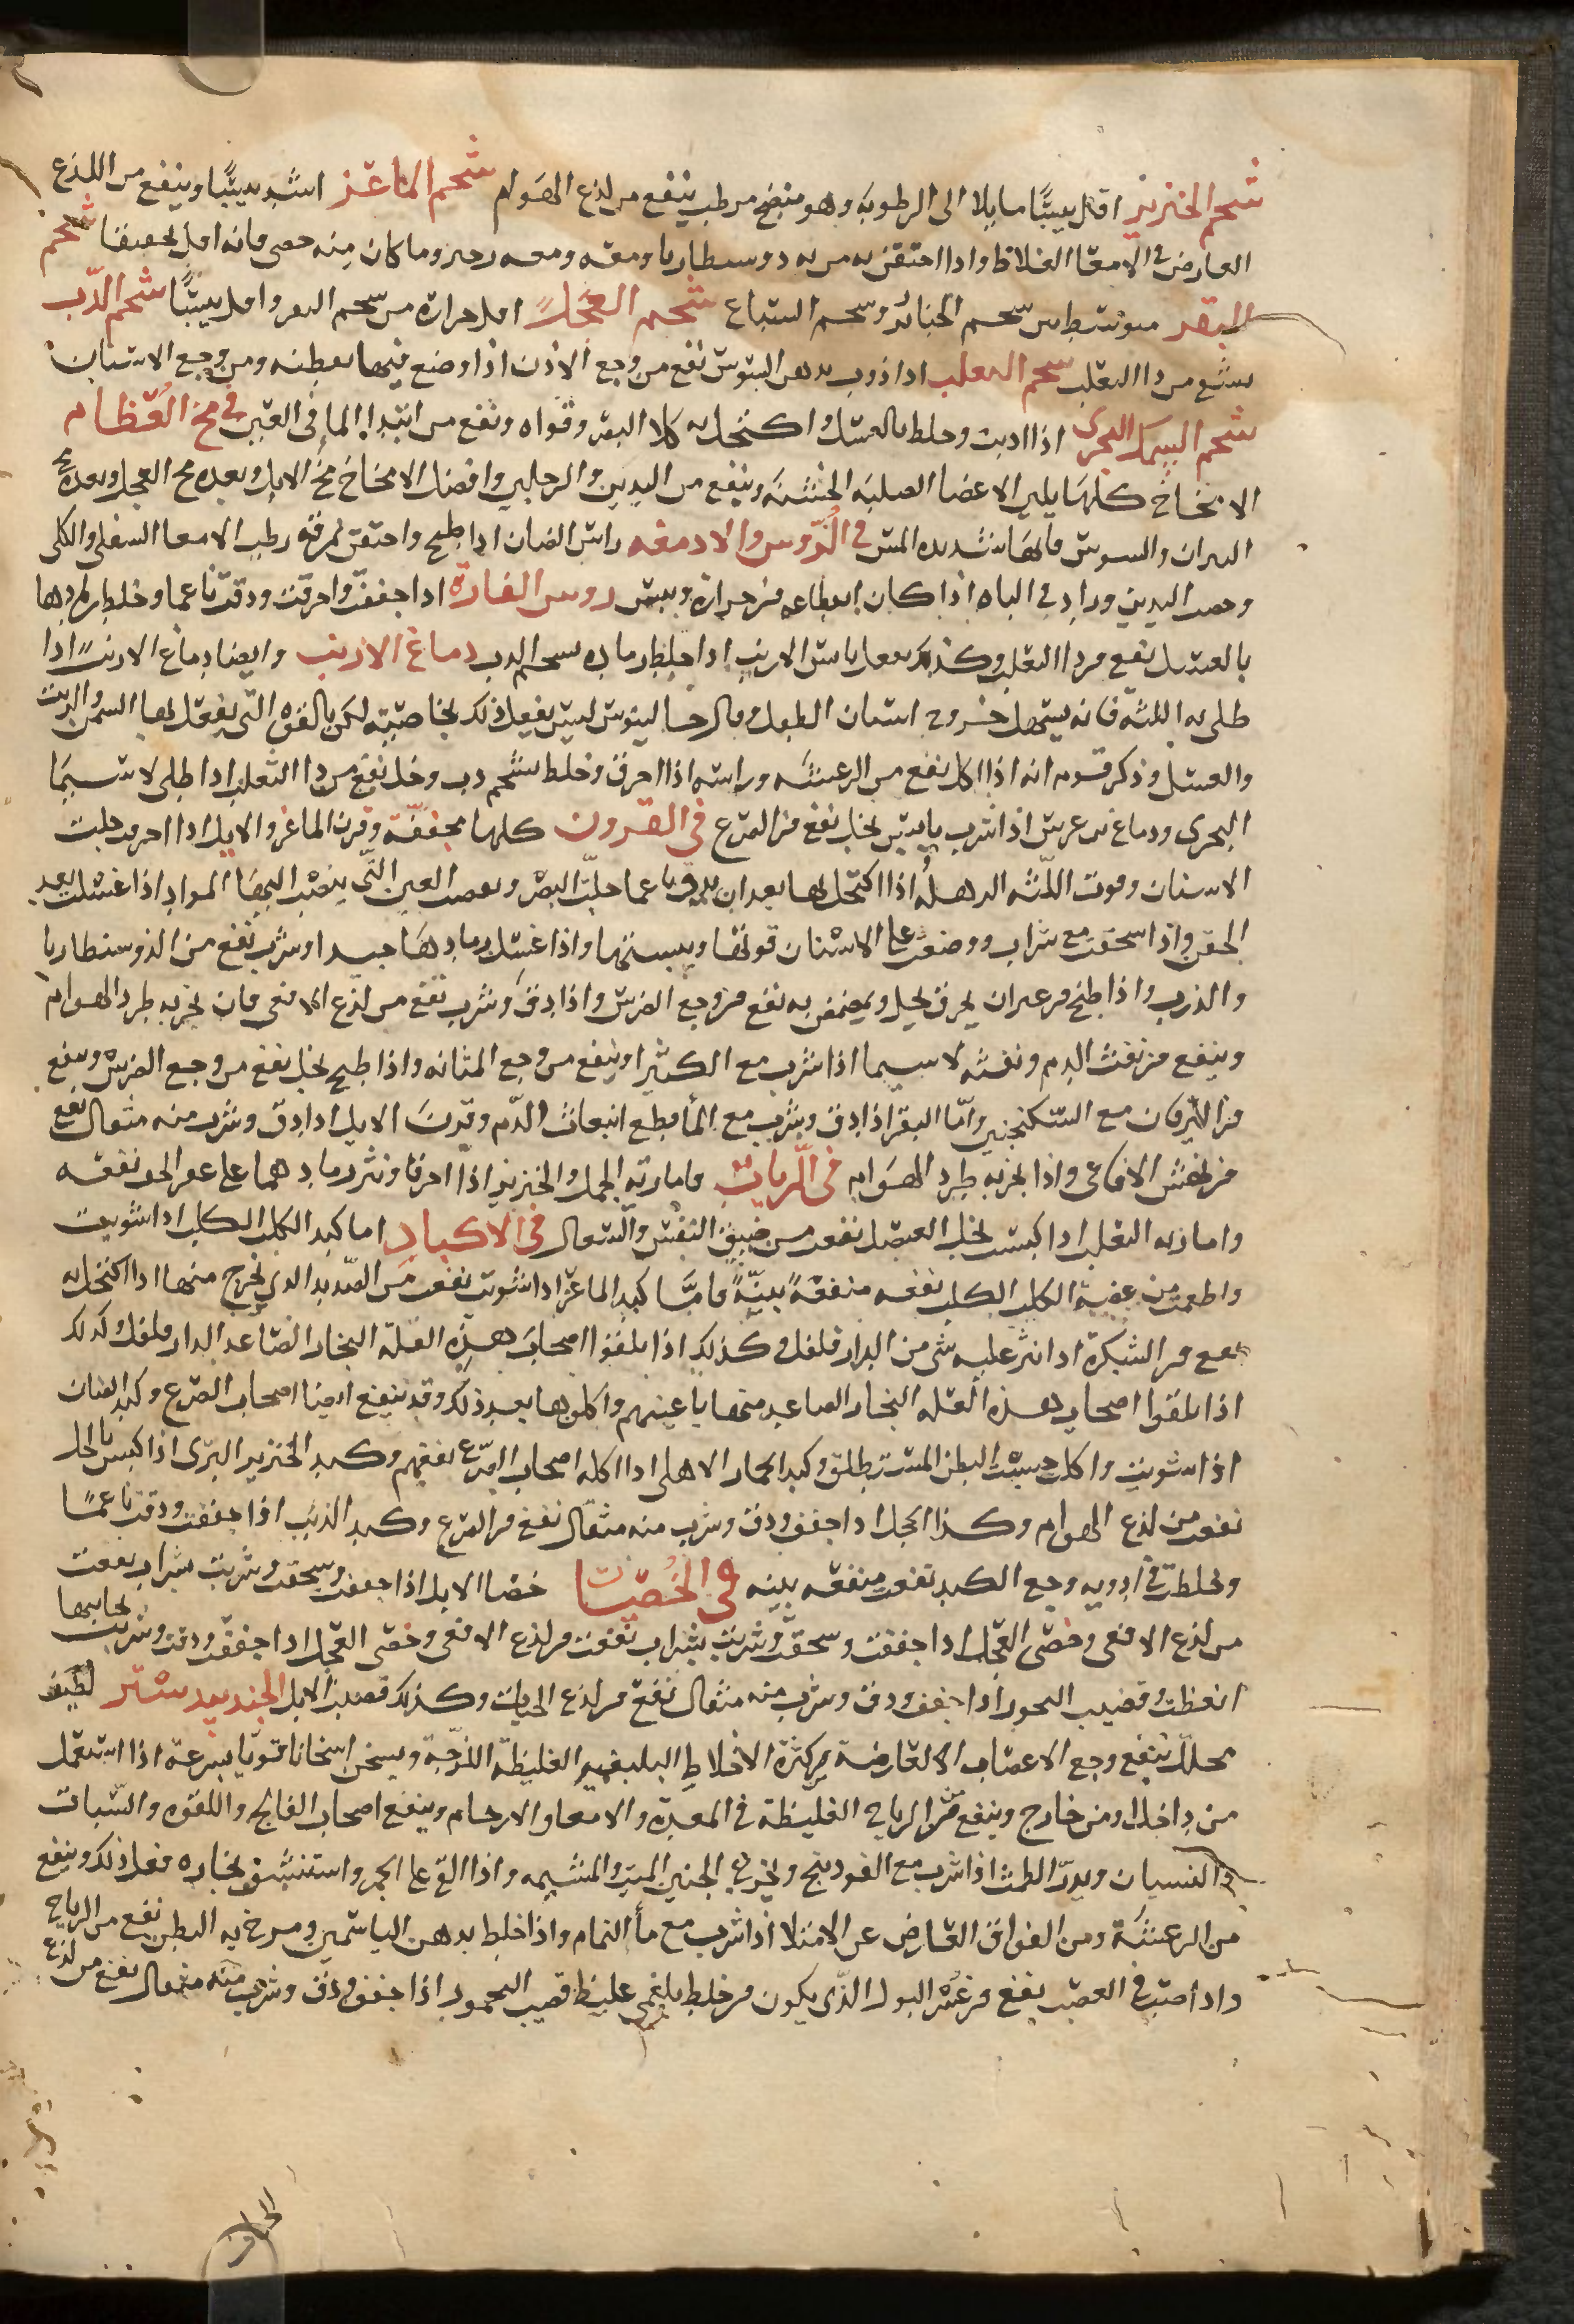 شحم الخنزير اقل يبسًا مايلا الى الرطوبه وهو منضج مرطب ينفع من لذع الهوام شحم الماعز اشد يبسًا وينفع من اللذع
العارض فى الامعا الغلاظ واذا احتقن به من به دوسنطاريا ومعه زحير وما كان منه خصى فانه اقل تجفيفا شحم
البقر متوسط بين شحم الخنازير وشحم السباع شحم العجل اقل حرارة من شحم البقر واقل يبسًا شحم الدب
ينفع من داالثعلب شحم الثعلب اذا ذوب بدهن السوسن نفع من وجع الاذن اذا وضع فيها بقطنه ومن وجع الاسنان
شحم السمك البحرى اذا اذيب وخلط بالعسل واكتحل به جلا البصر وقواه ونفع من ابتدا الما فى العين فى مخ العظام
الامخاخ كلها يلين الاعضا الصلبه الخشنه وينفع من اليدين والرجلين وافضل الامخاخ مخ الايل وبعده مخ العجل وبعده مخ
الثيران والتيوس فانها شديده اليبس فى الرّوس والادمغه راس الضان اذا طبخ واحتقن بمرقه رطب الامعا السفلى والكلى
وخصب البدن وزاد فى الباه اذا كان انقطاعه من حرارة ويبس روس الفارة اذا جففت واحرقت ودقت ناعما وخلط رمادها
بالعسل نفع من داالثعلب وكذلك يفعل راس الارنب اذا خلط رماده بشحم الدب دماغ الارنب وايضا دماغ الارنب اذا
طلى به اللثه فانه يسهل خروج اسنان الطفل وقال جالينوس ليس يفعل ذلك بخاصيته لكن بالقوه التى يفعل بها السمن والزيت
والعسل وذكر قوم انه اذا اكل نفع من الرعشه وراسه اذا احرق وخلط بشحم دب وخل نفع من داالثعلب اذا طلى لاسيما
البحرى ودماغ بن عرس اذا شرب يابس بخل نفع من الصرع فى القرون كلها مجففة وقرن الماعز والايل اذا احرقت جلت
الاسنان وقوت اللثه الرهله اذا اكتحل بها بعد ان يدق ناعما جلت البصر و العين التى ينصب اليها المواد اذا غسلت بعد
الحرق واذا سحقت مع شراب ووضعت على الاسنان قوتها ويبستها واذا غسل رمادها جيدا وشرب نفع من الدوسنطاريا
والذرب واذا طبخ من غير ان يحرق بخل وتمضمض به نفع من وجع الضرس واذا دق وشرب نفع من لذع الافعى فان بخر به طرد الهوام
وينفع من نفث الدم ونفثه لاسيما اذا شرب مع الكثيرا وينفع من وجع المثانه واذا طبخ بخل نفع من وجع الضرس وينفع
من اليرقان مع السكنجبين وامّا البقر اذا دق وشرب مع الما قطع انبعاث الدّم وقرن الايل اذا دق وشرب منه مثقال نفع
من نهش الافاعى واذا بخر به طرد الهوام فى الريات فاما رئه الجمل والخنزير اذا احرقا ونثر رمادهما على عقر الخف نفعه
واما رئه الثعلب اذا كبست بخل العنصل نفعت من ضيق النفس والسعال فى الاكباد اما كبد الكلب الكلب اذا شويت
واطعمت من عضه الكلب الكلب نفعه منفعةً بينةً فامّا كبد الماعز اذا شويت نفعت من الصديد الذى يخرج منها اذا اكتحل به
نفع من الشبكرة اذا نثر عليه شى من الدارفلفل وكذلك اذا تلقوا اصحاب هذه العلّه البخار الصاعد الدارفلفل وكذلك
اذا تلقوا اصحاب هذه العله البخار الصاعد منها باعينهم واكلوها بعد ذلك وقد ينفع ايضا اصحاب الصرع وكبد الضان
اذا شويت واكلت حبست البطن المستطلق وكبد الحمار الاهلى اذا اكله اصحاب الصرع نفعهم وكبد الخنزير البرى اذا كبس بالخل
نفعت من لذع الهوام وكذا الحجل اذا جفف ودق وشرب منه مثقال نفع من الصرع وكبد الذيب اذا جففت ودقت ناعمًا
وخلطت فى ادويه وجع الكبد نفعت منفعه بينه فى الخُصيات خصا الايل اذا جففت وسحقت وشربت بشراب نفعت
من لذع الافعى وخصى العجل اذا جففت وسحقت وشربت بشراب نفعت من لذع الافعى وخصى العجل اذا جففت ودقت وشربت بحالها
انعظت وقضيب اذا جفف ودق وشرب منه مثقال نفع من لذع الحيات وكذلك قضيب الايل الجندبيدستر لطيف
محلل ينفع وجع الاعصاب العارضه من كثرة الاخلاط البلغميه الغليظة اللزجة ويسخن اسخانا قويا بسرعة اذا استعمل
من داخل او من خارج وينفع من الرياح الغليظة فى المعدة والامعا والارحام وينفع اصحاب الفالج واللقوه والسبات
والنسيان ويدرّ الطمث اذا شرب مع الفودنج ويخرج الجنين الميت والمشيمه واذا القى على الجمر واستنشق بخاره فعل ذلك وينفع
من الرعشة ومن الفواق العارض عن الامتلا اذا شرب مع مأ النمام واذا خلط بدهن الياسمين ومرخ به البطن نفع من الرياح
واذا صب فى القضيب نفع من عسر البول الذى يكون من خلط بلغمى غليظ قضيب اذا جفف ودق وشرب منه مثقال نفع من لذع